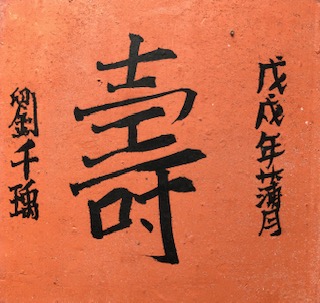 戊戌年蒲月
壽
劉千瑀